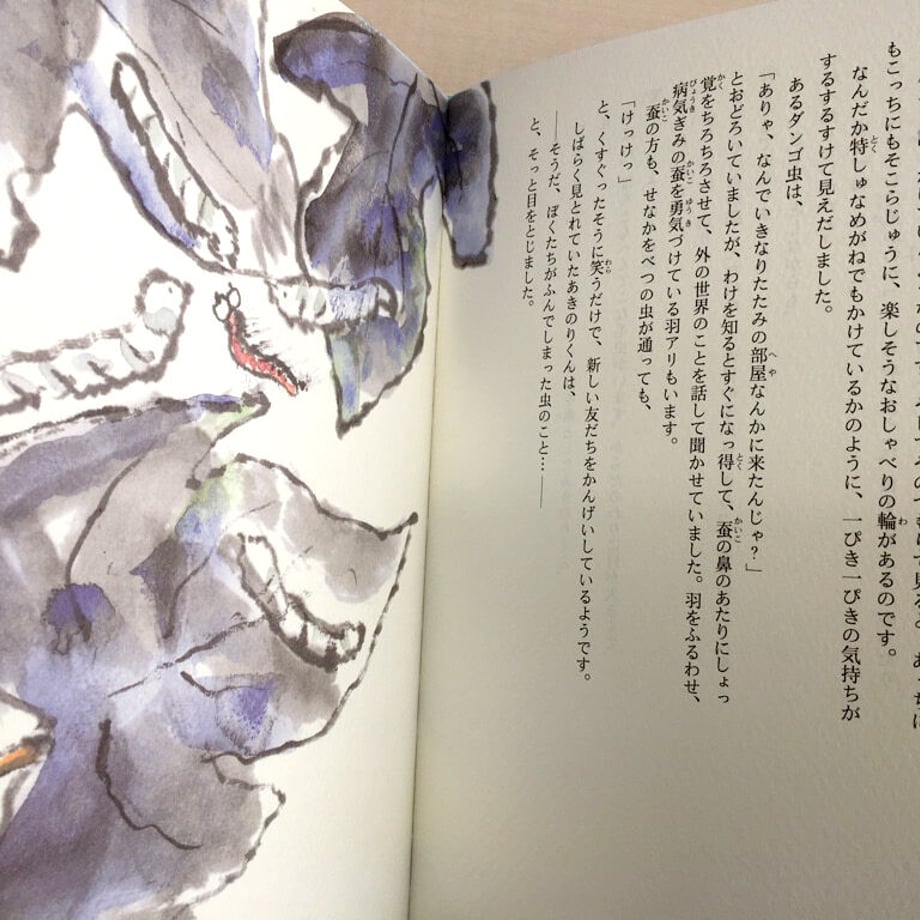 もこっちにもそこらじゅうに、楽しそうなおしゃべりの輪があるのです。
なんだか特しゅなめがねでもかけているかのように、一ぴき一ぴきの気持ちが
するするすけて見えだしました。
あるダンゴ虫は、
「ありゃ、なんでいきなりたたみの部屋なんかに来たんじゃ?」
とおどろいていましたが、わけを知るとすぐになっ得して、蚕の鼻のあたりにしょっ
覚をちろちろさせて、外の世界のことを話して聞かせていました。羽をふるわせ、
病気ぎみの蚕を勇気づけている羽アリもいます。
蚕の方も、せなかをべつの虫が通っても、
「けっけっ」
と、くすぐったそうに笑うだけで、新しい友だちをかんげいしているようです。
しばらく見とれていたあきのりくんは、
――そうだ、ぼくたちがふんでしまった虫のこと…――
と、そっと目をとじました。